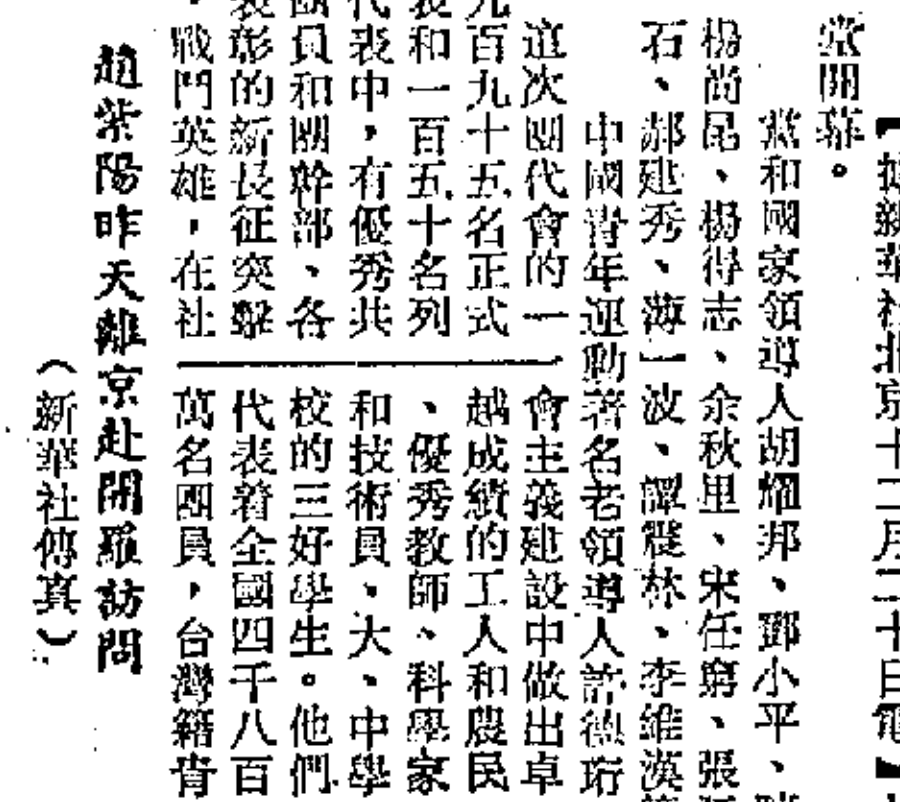 據新華社北京十二月二十日電】
堂開幕。
黨和國家領導人胡耀邦、鄧小平、
楊尚昆、楊得志、余秋里、宋任窮、張
石、郝建秀、薄一波、譚震林、李維漢
中國青年運動著名老領導人許德珩
這次團代會的一
九百九十五名正式
表和一百五十名列
代表中，有優秀共
團員和團幹部、各
表彰的新長征突擊
、戰鬥英雄，在社
會主義建設中做出卓
越成績的工人和農民
、優秀教師、科學家
和技術員、大、中學
校的三好學生。他們
代表着全國四千八百
萬名團員，台灣籍青
趙紫陽昨天離京赴開羅訪問
（新華社傳真）